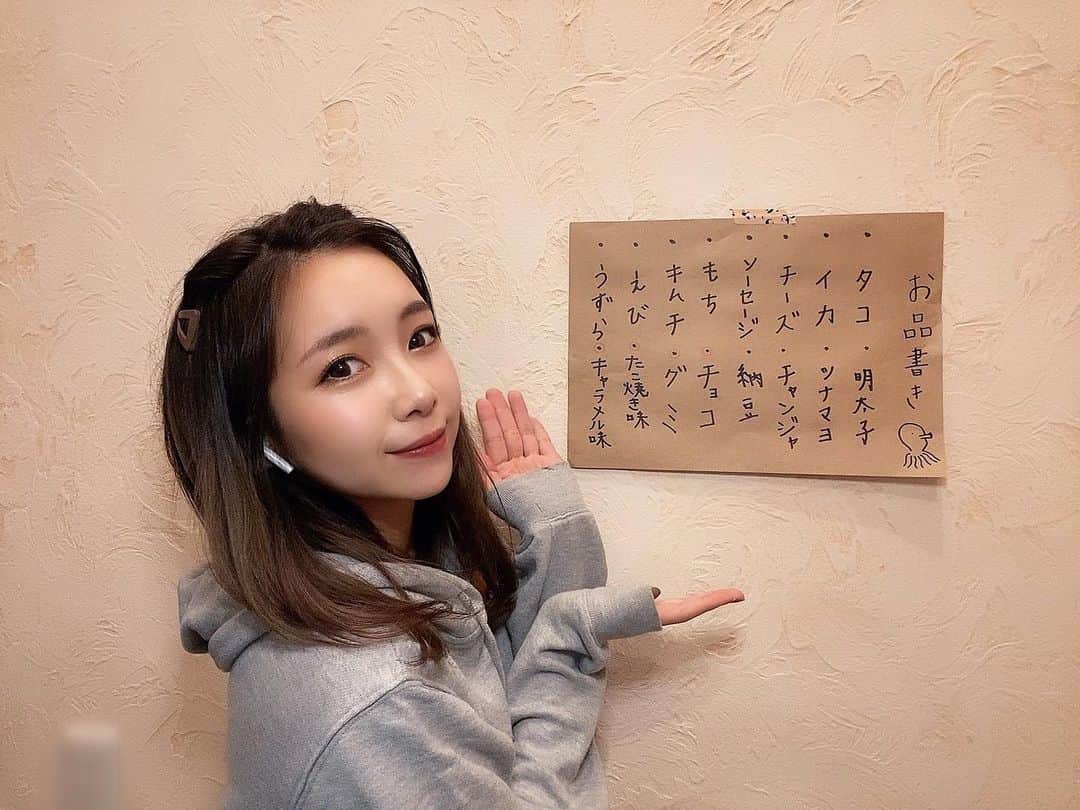 お品書き
・タコ ・明太子
・イカ ・ツナマヨ
・チーズ ・チャンジャ
・ソーセージ ・納豆
・もち ・チョコ
・キムチ ・グミ
・えび ・たこ焼き味
・うずら ・キャラメル味